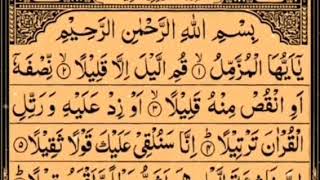 بِسْمِ اللهِ الرَّحْمٰنِ الرَّحِيْمِ
يٰٓاَيُّهَا الْمُزَّمِّلُ ۙ﴿۱﴾ قُمِ الَّيْلَ اِلَّا قَلِيْلًا ۙ﴿۲﴾ نِّصْفَهٗۤ
اَوِ انْقُصْ مِنْهُ قَلِيْلًا ۙ﴿۳﴾ اَوْ زِدْ عَلَيْهِ وَ رَتِّلِ
الْقُرْاٰنَ تَرْتِيْلًا ؕ﴿۴﴾ اِنَّا سَنُلْقِيْ عَلَيْكَ قَوْلًا ثَقِيْلًا ﴿۵﴾